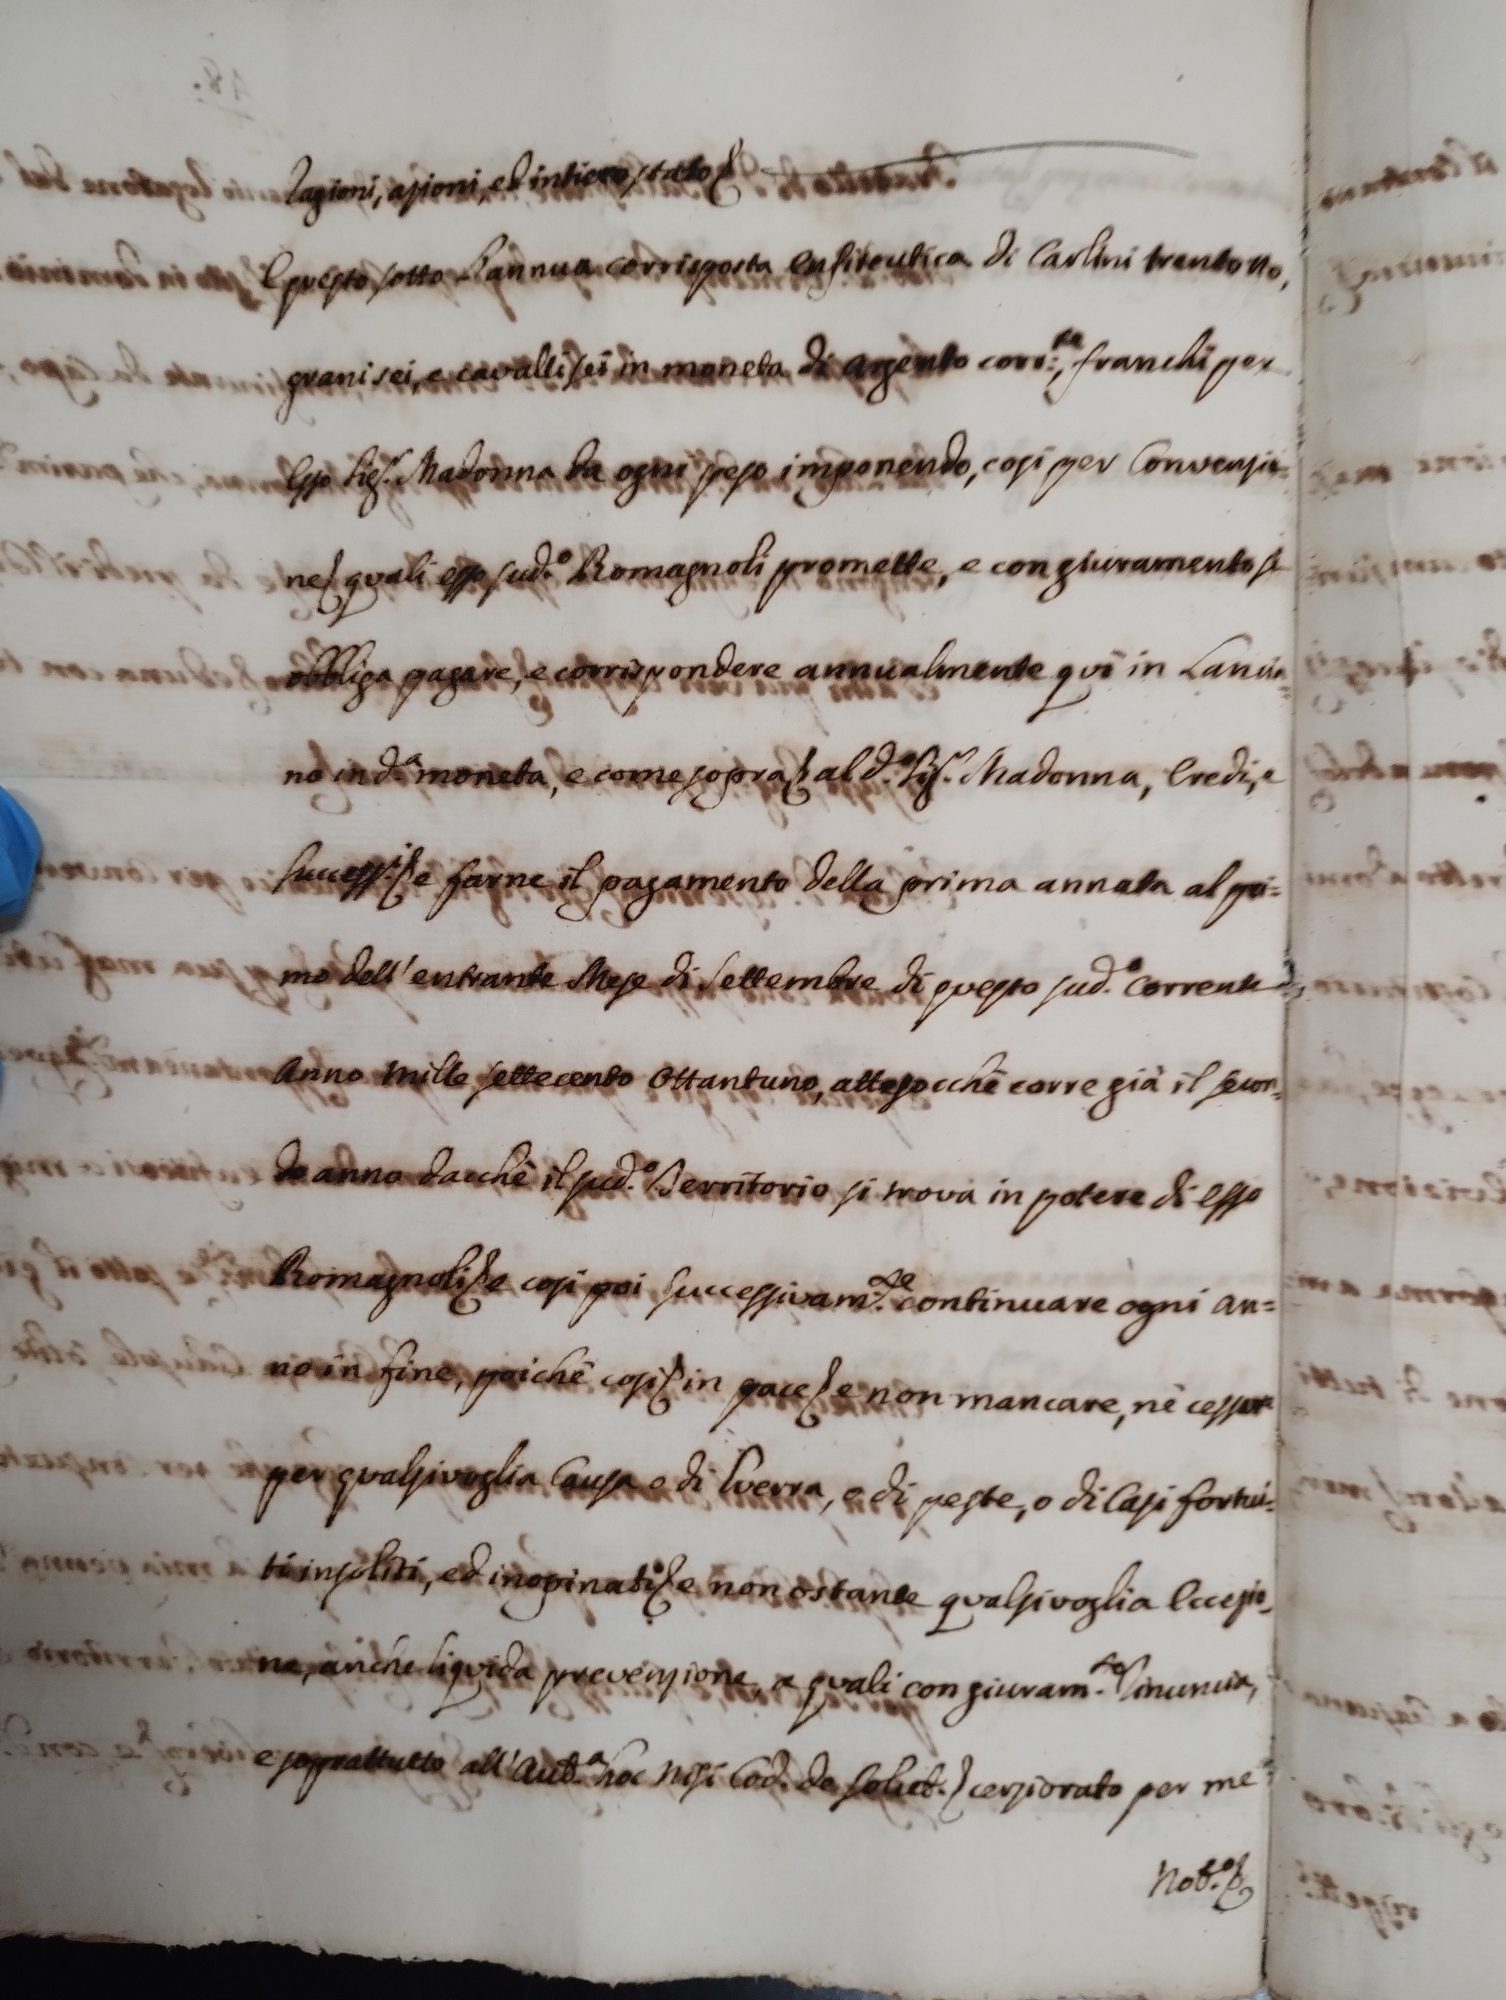 ragioni, azioni, ed intiero stato &
E questo sotto l'annua corrisposta enfiteutica di Carlini trentotto,
grani sei, e cavalli sei in moneta di argento corr:te, franchi per
esso Sig.r Madonna da ogni peso imponendo, così per Convenzio=
ne & quali esso sud.o Romagnoli promette, e con giuramento si
obbliga pagare, e corrispondere annualmente quì in Lancia=
no in d.a moneta, e come sopra & al d.o Sig.r Madonna, Eredi, e
Success.i & e farne il pagamento della prima annata al pri=
mo dell'entrante Mese di Settembre di questo sud.o corrente
Anno mille settecento Ottantuno, attesocchè corre già il secon=
do anno dacchè il sud.o Territorio si trova in potere di esso
Romagnoli & e così poi successivam.te continuare ogni an=
no in fine, poichè così & in pace & e non mancare, nè cessare
per qualsivoglia Causa o di Guerra, o di peste, o di Casi fortui=
ti insoliti, ed inopinati & e non ostante qualsivoglia Eccezio=
ne, anche liquida prevenzione, a quali con giuram.to rinuncia,
e soprattutto all'Aut.a hoc nisi Cod. de solut. & cerziorato per me
Not.o &